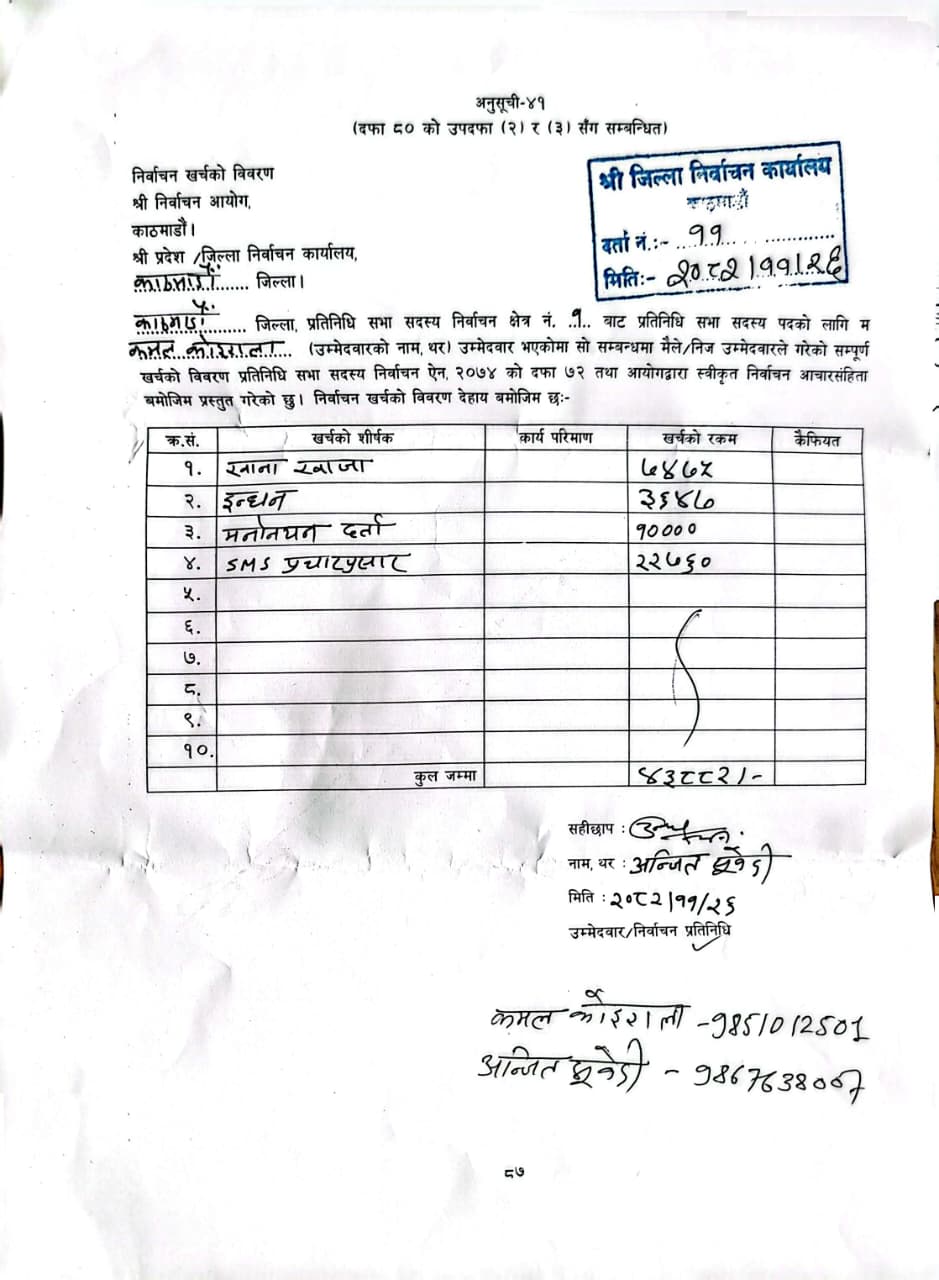 अनुसूची-४१
(दफा ८० को उपदफा (२) र (३) सँग सम्बन्धित)
निर्वाचन खर्चको विवरण
श्री निर्वाचन आयोग,
काठमाडौं।
श्री प्रदेश /जिल्ला निर्वाचन कार्यालय,
काठमाडौं....... जिल्ला।
श्री जिल्ला निर्वाचन कार्यालय
काठमाडौं
दर्ता नं.:- ११
मिति:- २०८२।११।२६
काठमाडौं.......... जिल्ला, प्रतिनिधि सभा सदस्य निर्वाचन क्षेत्र नं. १ बाट प्रतिनिधि सभा सदस्य पदको लागि म
कमल कोइराला.... (उम्मेदवारको नाम, थर) उम्मेदवार भएकोमा सो सम्बन्धमा मैले/निज उम्मेदवारले गरेको सम्पूर्ण
खर्चको विवरण प्रतिनिधि सभा सदस्य निर्वाचन ऐन, २०७४ को दफा ७२ तथा आयोगद्वारा स्वीकृत निर्वाचन आचारसंहिता
बमोजिम प्रस्तुत गरेको छु। निर्वाचन खर्चको विवरण देहाय बमोजिम छः-
क्र.सं. खर्चको शीर्षक कार्य परिमाण खर्चको रकम कैफियत
१. खाना खाजा ७४७५
२. इन्धन ३६४७
३. मनोनयन दर्ता १००००
४. SMS प्रचारप्रसार २२७६०
५.
६.
७.
८.
९.
१०.
कुल जम्मा ४३८८२।-
सहीछाप :
नाम, थर : अन्जित
मिति : २०८२/११/२६
उम्मेदवार/निर्वाचन प्रतिनिधि
कमल कोइराला - 9851012501
अन्जित - 9867638007
८७